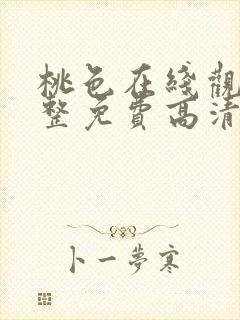 桃色在綫觀
整免費高清
卜一夢寒